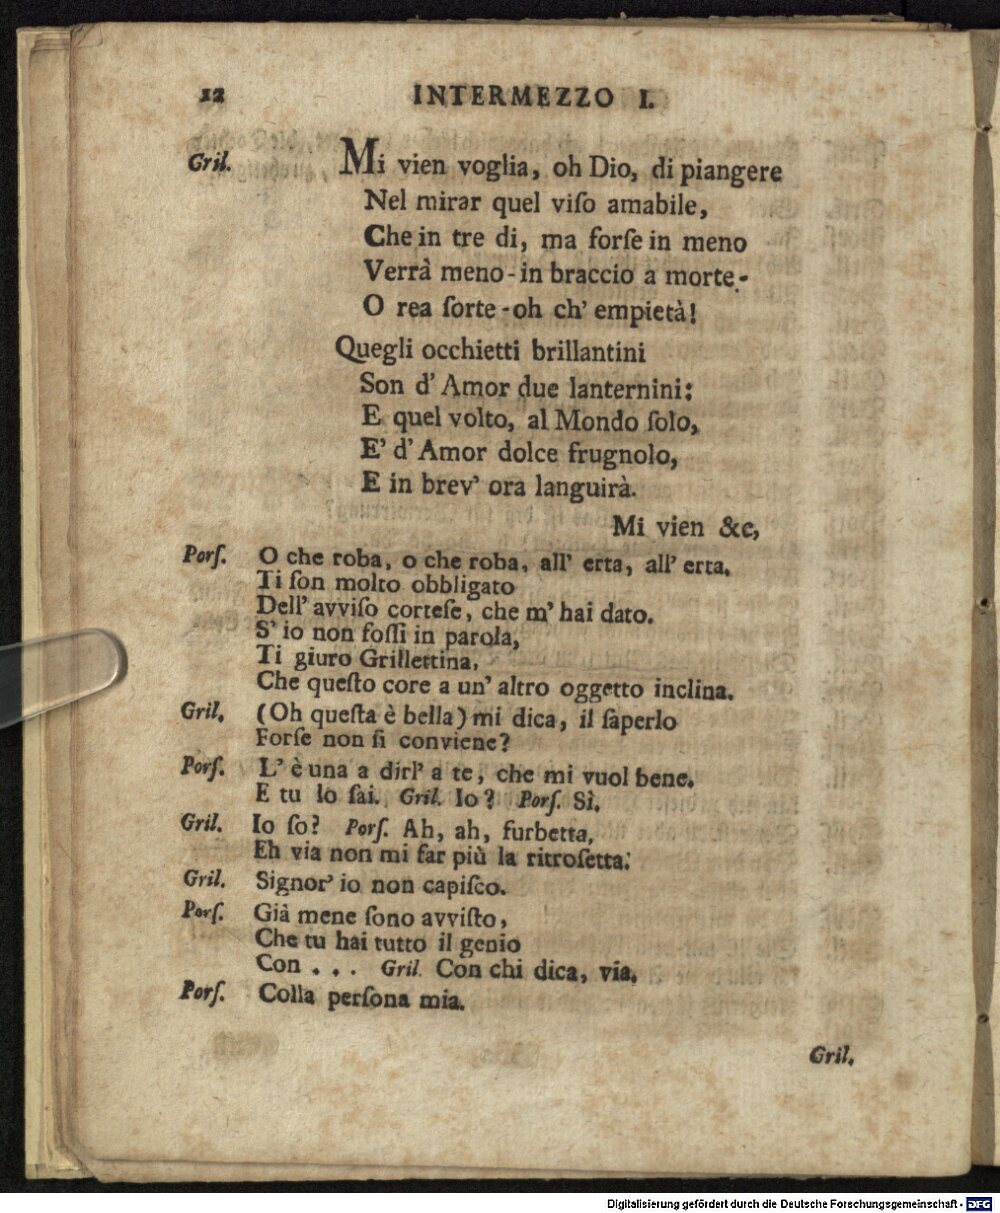 12 INTERMEZZO I.
Gril. Mi vien voglia, oh Dio, di piangere
Nel mirar quel viſo amabile,
Che in tre di, ma forſe in meno
Verrà meno - in braccio a morte -
O rea ſorte - oh ch' empietà!
Quegli occhietti brillantini
Son d' Amor due lanternini:
E quel volto, al Mondo ſolo,
E' d' Amor dolce frugnolo,
E in brev' ora languirà.
Mi vien &c,
Porſ. O che roba, o che roba, all' erta, all' erta.
Ti ſon molto obbligato
Dell' avviſo corteſe, che m' hai dato.
S' io non foſſi in parola,
Ti giuro Grillettina,
Che queſto core a un' altro oggetto inclina.
Gril. (Oh queſta è bella) mi dica, il ſaperlo
Forſe non ſi conviene?
Porſ. L' è una a dirl' a te, che mi vuol bene.
E tu lo ſai. Gril. Io? Porſ. Sì.
Gril. Io ſo? Porſ. Ah, ah, furbetta,
Eh via non mi far più la ritroſetta.
Gril. Signor' io non capiſco.
Porſ. Già mene ſono avviſto,
Che tu hai tutto il genio
Con . . . Gril. Con chi dica, via.
Porſ. Colla perſona mia.
Gril.
Digitalisierung gefördert durch die Deutsche Forschungsgemeinschaft - DFG